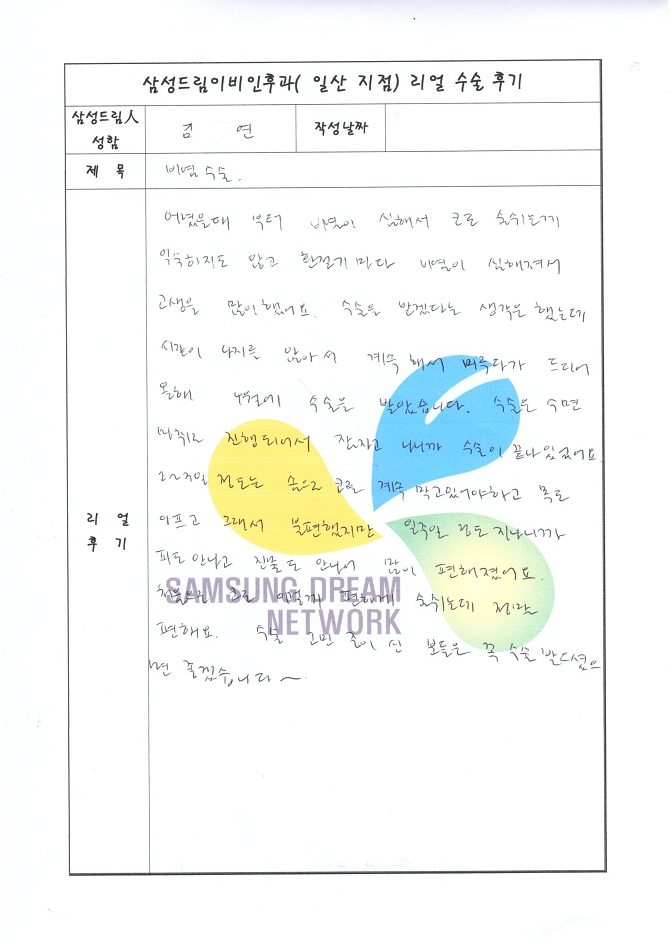 삼성드림이비인후과( 일산 지점) 리얼 수술 후기
삼성드림人
성함
김 연
작성날짜
제 목
비염 수술.
어렸을때 부터 비염이 심해서 코로 숨쉬는게
익숙하지도 않고 환절기 마다 비염이 심해져서
고생을 많이 했어요. 수술을 받겠다는 생각은 했는데
시간이 나지를 않아서 계속 해서 미루다가 드디어
올해 4월에 수술을 받았습니다. 수술은 수면
마취로 진행되어서 잠자고 나니까 수술이 끝나있었어요.
2~3일 정도는 솜으로 코를 계속 막고있어야하고 목도
아프고 그래서 불편했지만 일주일 정도 지나니까
피도 안나고 진물도 안나서 많이 편해졌어요.
처음으로 코로 이렇게 편하게 숨쉬는데 정말
편해요. 수술 고민 중이신 분들은 꼭 수술 받으셨으
면 좋겠습니다~.
리 얼
후 기
SAMSUNG DREAM
NETWORK